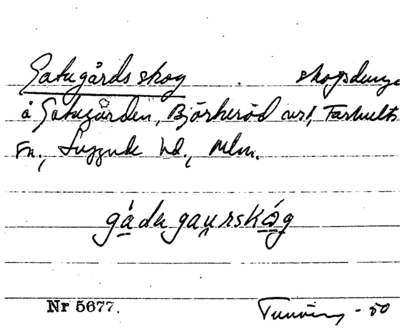 Gatugårdsskog . skogsdunge
å Gatugården, Björkeröd nr 1, Farhults
sn., Luggude hd., Mlm.
gådugaurskåg
Nr 5677.
Tunvin, -50